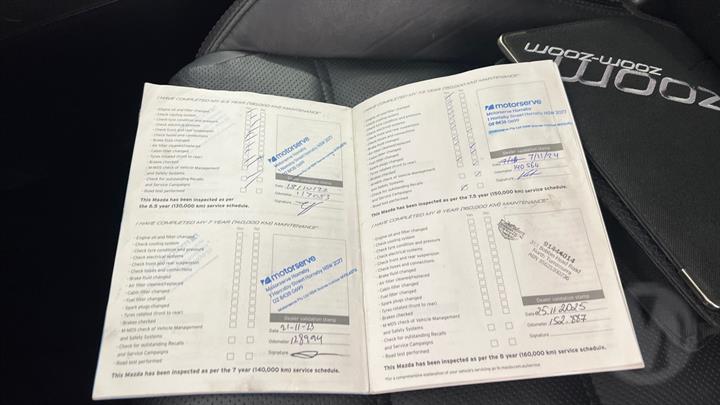 I HAVE COMPLETED MY 6.5 YEAR (130,000 KM) MAINTENANCE*
- Engine oil and filter changed
- Check cooling system
- Check tyre condition and pressure
- Check electrical systems
- Check front and rear suspension
- Check hoses and connections
- Brake fluid changed
- Air filter cleaned/replaced
- Cabin filter changed
- Tyres rotated (front to rear)
- Brakes checked
- M-MDS check of Vehicle Management and Safety Systems
- Check for outstanding Recalls
and Service Campaigns
- Road test performed
motorserve
Motorserve Hornsby
1 Hornsby Street Hornsby NSW 2077
02 8438 0699
Dealer validation stamp
Date
Odometer
Signature
This Mazda has been inspected as per
the 6.5 year (130,000 km) service schedule.
I HAVE COMPLETED MY 7 YEAR (140,000 KM) MAINTENANCE*
Yes No
- Engine oil and filter changed
- Check cooling system
- Check tyre condition and pressure
- Check electrical systems
- Check front and rear suspension
- Check hoses and connections
- Brake fluid changed
- Air filter cleaned/replaced
- Cabin filter changed
- Fuel filter changed
- Spark plugs changed
- Tyres rotated (front to rear)
- Brakes checked
- M-MDS check of Vehicle Management
and Safety Systems
- Check for outstanding Recalls
and Service Campaigns
- Road test performed
motorserve
Motorserve Hornsby
1 Hornsby Street Hornsby NSW 2077
02 8438 0699
Dealer validation stamp
Date 21-11-23
Odometer 128994
Signature
This Mazda has been inspected as per the 7 year (140,000 km) service schedule.
I HAVE COMPLETED MY 7.5 YEAR (150,000 KM) MAINTENANCE*
- Engine oil and filter changed
- Check cooling system
- Check tyre condition and pressure
- Check electrical systems
- Check front and rear suspension
- Check hoses and connections
- Brake fluid changed
- Air filter cleaned/replaced
- Cabin filter changed
- Tyres rotated (front to rear)
- Brakes checked
- M-MDS check of Vehicle Management
and Safety Systems
- Check for outstanding Recalls
and Service Campaigns
- Road test performed
motorserve
Motorserve Hornsby
1 Hornsby Street Hornsby NSW 2077
02 8438 0699
Dealer validation stamp
Date 7/11/24
Odometer 140564
Signature
This Mazda has been inspected as per the 7.5 year (150,000 km) service schedule.
I HAVE COMPLETED MY 8 YEAR (160,000 KM) MAINTENANCE*
Yes No
- Engine oil and filter changed
- Check cooling system
- Check tyre condition and pressure
- Check electrical systems
- Check front and rear suspension
- Check hoses and connections
- Brake fluid changed
- Air filter cleaned/replaced
- Cabin filter changed
- Fuel filter changed
- Spark plugs changed
- Tyres rotated (front to rear)
- Brakes checked
- M-MDS check of Vehicle Management
and Safety Systems
- Check for outstanding Recalls
and Service Campaigns
- Road test performed
Bobbin Head Road
North Turramurra
Dealer validation stamp
Date 25.11.2025
Odometer 152.887
Signature
This Mazda has been inspected as per the 8 year (160,000 km) service schedule.
*For a comprehensive explanation of your vehicle's servicing go to mazda.com.au/service
zoom
zoom-zoom
zoom